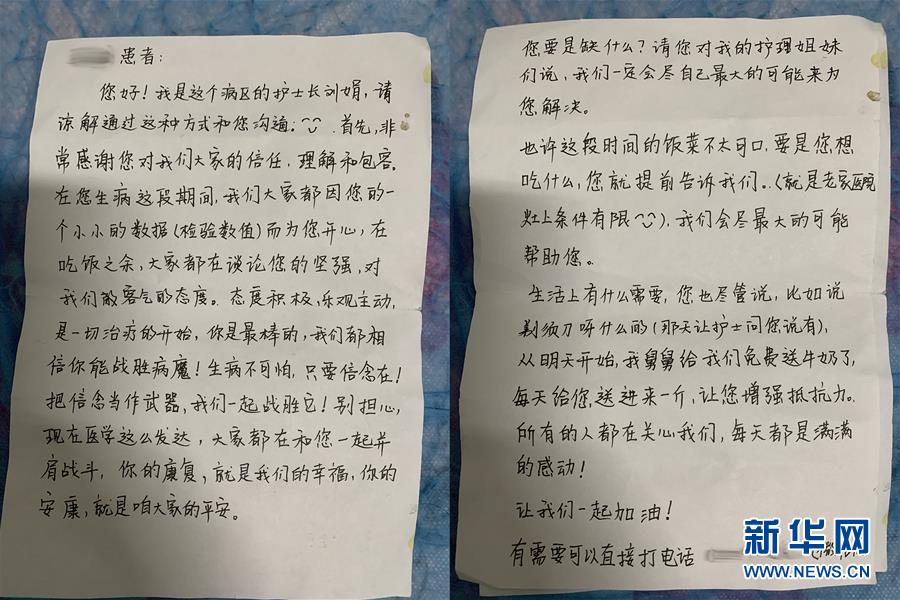 患者：
您好！我是这个病区的护士长刘娟，请
谅解通过这种方式和您沟通。首先，非
常感谢您对我们大家的信任、理解和包容。
在您生病这段期间，我们大家都因您的一
个小小的数据(检验数值)而为您开心，在
吃饭之余，大家都在谈论您的坚强，对
我们般客气的态度。态度积极，乐观主动，
是一切治疗的开始，你是最棒的，我们都相
信你能战胜病魔！生病不可怕，只要信念在！
把信念当作武器，我们一起战胜它！别担心，
现在医学这么发达，大家都在和您一起并
肩战斗，你的康复，就是我们的幸福，你的
安康，就是咱大家的平安。
您要是缺什么？请您对我的护理姐妹
们说，我们一定会尽自己最大的可能来为
您解决。
也许这段时间的饭菜不太可口，要是您想
吃什么，您就提前告诉我们。(就是老家医院
灶上条件有限)，我们会尽最大的可能
帮助您。
生活上有什么需要，您也尽管说，比如说
剃须刀呀什么的(那天让护士问您说有)，
从明天开始，我舅舅给我们免费送牛奶了，
每天给您送进来一斤，让您增强抵抗力。
所有的人都在关心我们，每天都是满满
的感动！
让我们一起加油！
有需要可以直接打电话
新华网
WWW.NEWS.CN